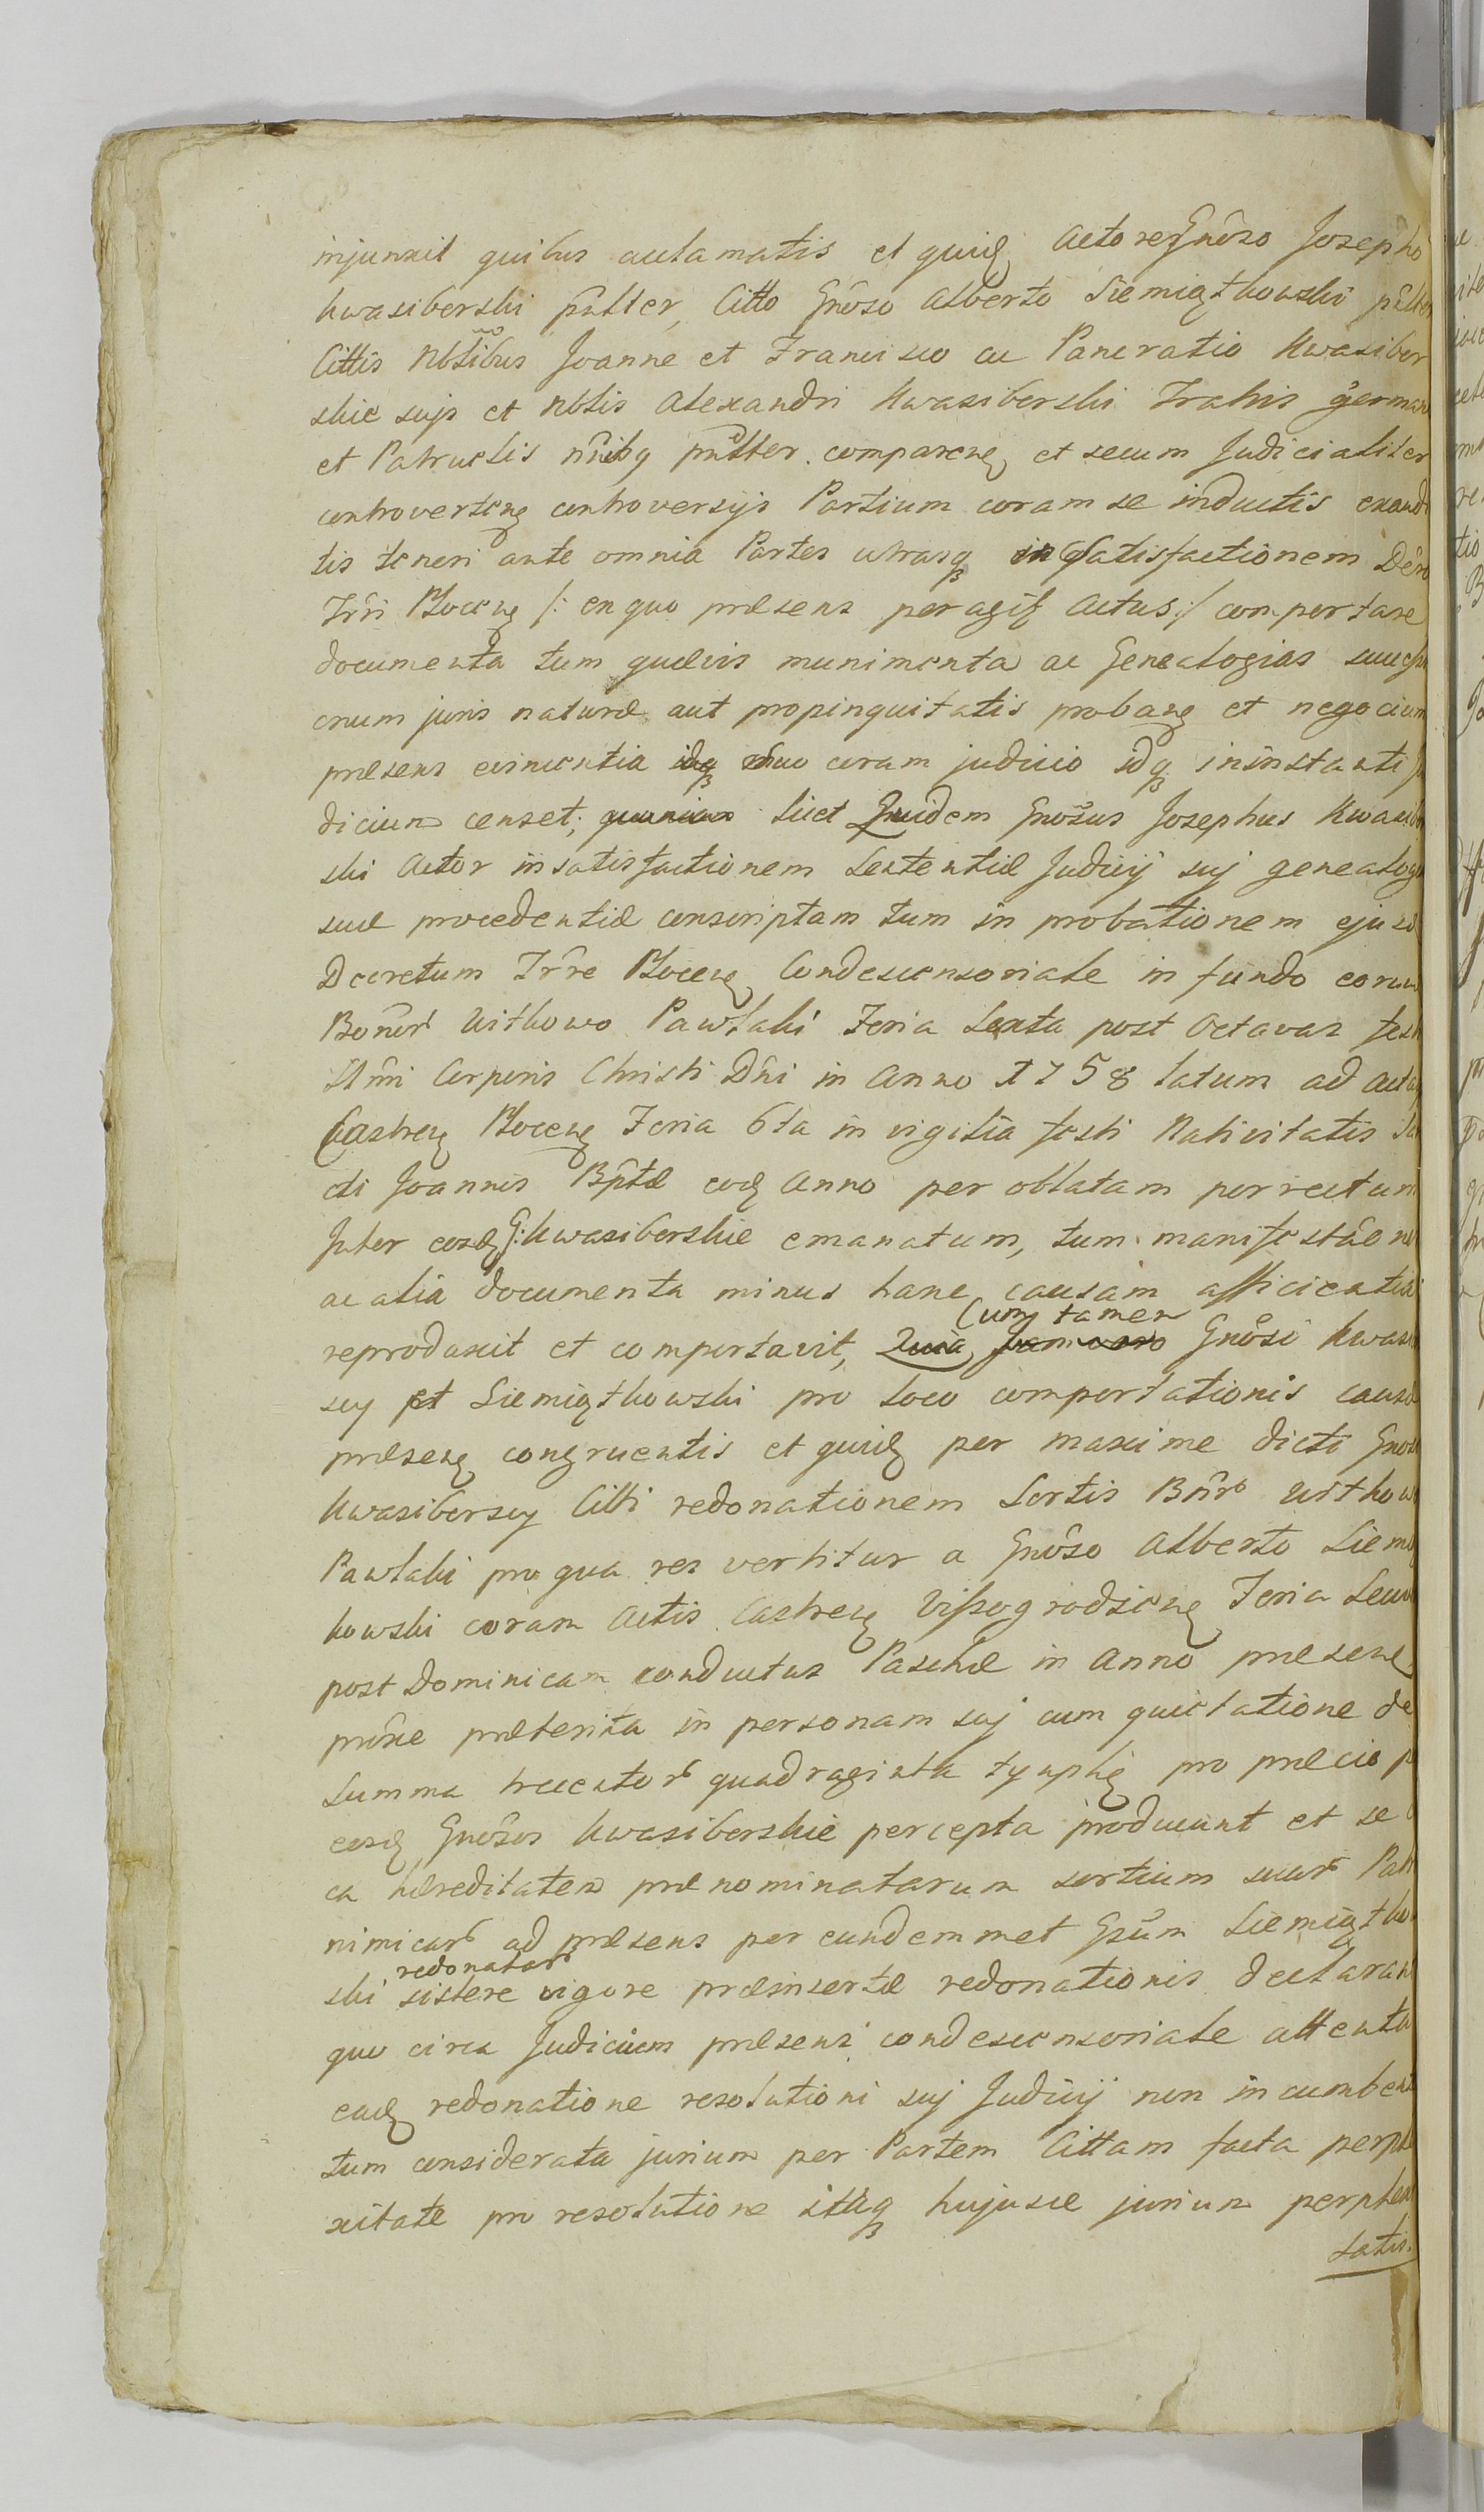 injunxit quibus acclamatis et quid Actore Gnôso Josepho
Kwasiborski pnlter, Citto Gnôso Alberto Siemiątkowski pnlter
Cittis Nbtibus Joanne et Francisco ac Pancratio Kwasibor
skie sujs et Nblis Alexandri Kwasiborski Fratris german
et Patruelis nnîbq pnlter comparen et secum Judicialiter
controverten controversijs Partium coram se inductis exaudi
tis teneri ante omnia Partes utrasq in satisfactionem Decr
Trri Plocen /: ex quo præsens peragit Actus :/ comportare
documenta tum quævis munimenta ac Genealogias success
onum juris naturæ aut propinquitatis proban et negocium
præsens concernentia idq coram judicio idq in instanti Ju
dicium censet; licet Quidem Gnôsus Josephus Kwasibor
ski Actor in satisfactionem Sententiæ Judicij suj genealogi
suæ procedentiæ conscriptam tum in probationem ejusd
Decretum Trre Plocen Condescensoriale in fundo eorum
Bonor Witkowo Pawlaki Feria Sexta post Octavas fest
SSmi Corporis Christi Dni in Anno 1758 latum ad acta
Castren Plocen Feria 6ta in vigilia festi Nativitatis San
cti Joannis Bptæ eod Anno per oblatam porrectum
Inter eosd G: Kwasiborskie emanatum, tum manifestâone
ac alia documenta minus hanc causam afficientia
Cum tamen
reproduxit et comportavit, Quia Gnôsi Kwasi
scy et Siemiątkowski pro loco comportationis causæ
præsen congruentis et quid per maxime dicti Gnos
Kwasiborscy Citti redonationem Sortis Bnr Witkow
Pawlaki pro qua res vertitur a Gnôso Alberto Siemią
kowski coram Actis Castren Vissogrodzien Feria Secun
post Dominicam conductus Paschæ in Anno præsen
proxe præterita in personam suj cum quietatione de
Summa trecentor quadraginta tynph pro præcio p
eosd Gnôsos Kwasiborskie percepta producunt et se
ca hæreditatem prænominatarum sortium suar Patr
nimicar ad præsens per eundemmet Gsûm Siemiątko
redonatar
ski sistere vigore præinsertæ redonationis declaran
quo circa Judicium præsens condescensoriale attenta
ead redonatione resolutioni suj Judicij non incumben
tum considerata jurium per Partem Cittam facta perple
xitate pro resolutione itaq hujusce jurium perplexi
tatis.